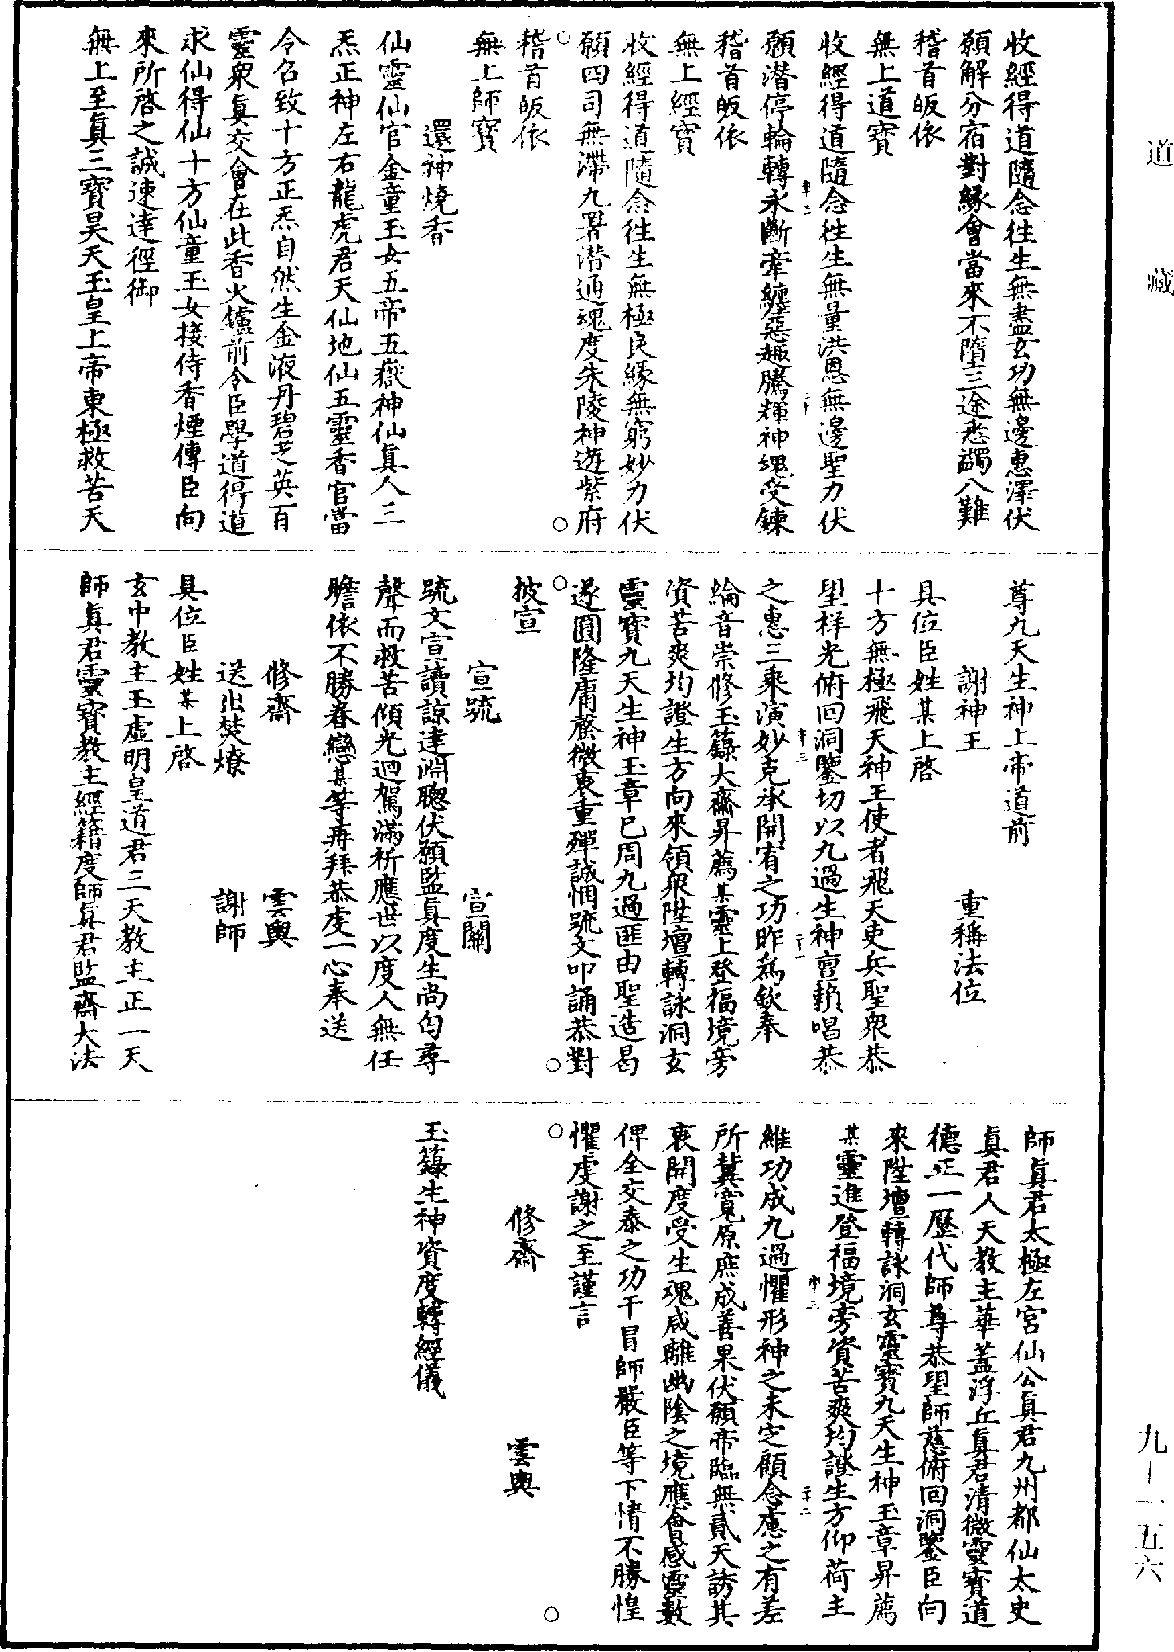 道藏
收經得道隨念往生無盡玄功無邊惠澤伏
願解分宿對緣會當來不墮三途悉蠲八難
稽首皈依
無上道寶
收經得道隨念往生無量洪恩無邊聖力伏
願潛停輪轉永斷牽纏惡趣騰輝神魂受鍊
稽首皈依
無上經寶
收經得道隨念往生無極良緣無窮妙力伏
願四司無滯九署潛通魂度朱陵神遊紫府
稽首皈依
無上師寶
還神燒香
仙靈仙官金童玉女五帝五嶽神仙真人三
炁正神左右龍虎君天仙地仙五靈香官當
令名致十方正炁自然生金液丹碧芝英百
靈眾真交會在此香火鑪前令臣學道得道
求仙得仙十方仙童玉女接侍香煙傳臣向
來所啓之誠速達徑御
無上至真三寶昊天玉皇上帝東極救苦天
尊九天生神上帝道前
謝神王 重稱法位
具位臣姓某上啓
十方無極飛天神王使者飛天吏兵聖眾恭
望祥光俯回洞鑒切以九過生神亶賴唱恭
之惠三乘演妙克承開宥之功昨為欽奉
綸音崇修玉籙大齋昇薦某靈上登福境旁
資苦爽均證生方向來領眾陞壇轉詠洞玄
靈寶九天生神玉章已周九過匪由聖造曷
遂圓隆庸罄微衷重殫誠悃疏文叩誦恭對
披宣
宣疏 宣關
疏文宣讀諒達淵聰伏願監真度生尚匄尋
聲而救苦傾光迴駕滿祈應世以度人無任
瞻依不勝眷戀某等再拜恭虔一心奉送
修齋 雲輿
送出焚燎 謝師
具位臣姓某上啓
玄中教主玉虛明皇道君三天教主正一天
師真君靈寶教主經籍度師真君監齋大法
師真君太極左宮仙公真君九州都仙太史
真君人天教主華蓋浮丘真君清微靈寶道
德正一歷代師尊恭望師慈俯回洞鑒臣向
來陞壇轉詠洞玄靈寶九天生神玉章昇薦
某靈進登福境旁資苦爽均證生方仰荷主
維功成九過懼形神之未定顧念慮之有差
所冀寬原庶成善果伏願帝臨無貳天誘其
衷開度受生魂咸離幽陰之境應會感靈數
俾全交泰之功干冒師嚴臣等下情不勝惶
懼虔謝之至謹言
修齋 雲輿
玉籙生神資度轉經儀
九-一五六